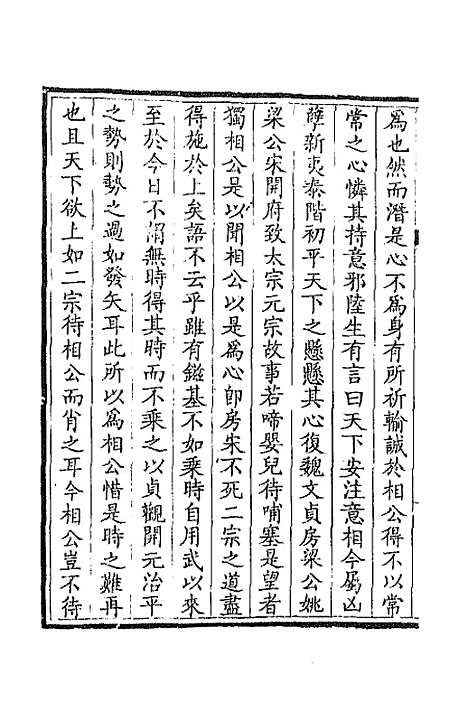 為也然而潛是心不為身有所祈輸誠於相公得不以常
常之心憐其持意邪陸生有言曰天下安注意相今屬凶
孽新夷泰階初平天下之懸懸其心復魏文貞房梁公姚
梁公宋開府致太宗元宗故事若啼嬰兒待哺塞是望者
獨相公是以聞相公以是為心卽房宋不死二宗之道盡
得施於上矣語不云乎雖有鎡基不如乘時自用武以來
至於今日不閒無時得其時而不乘之以貞觀開元治平
之勢則勢之過如發矢耳此所以為相公惜是時之難再
也且天下欲上如二宗待相公而肖之耳今相公豈不待